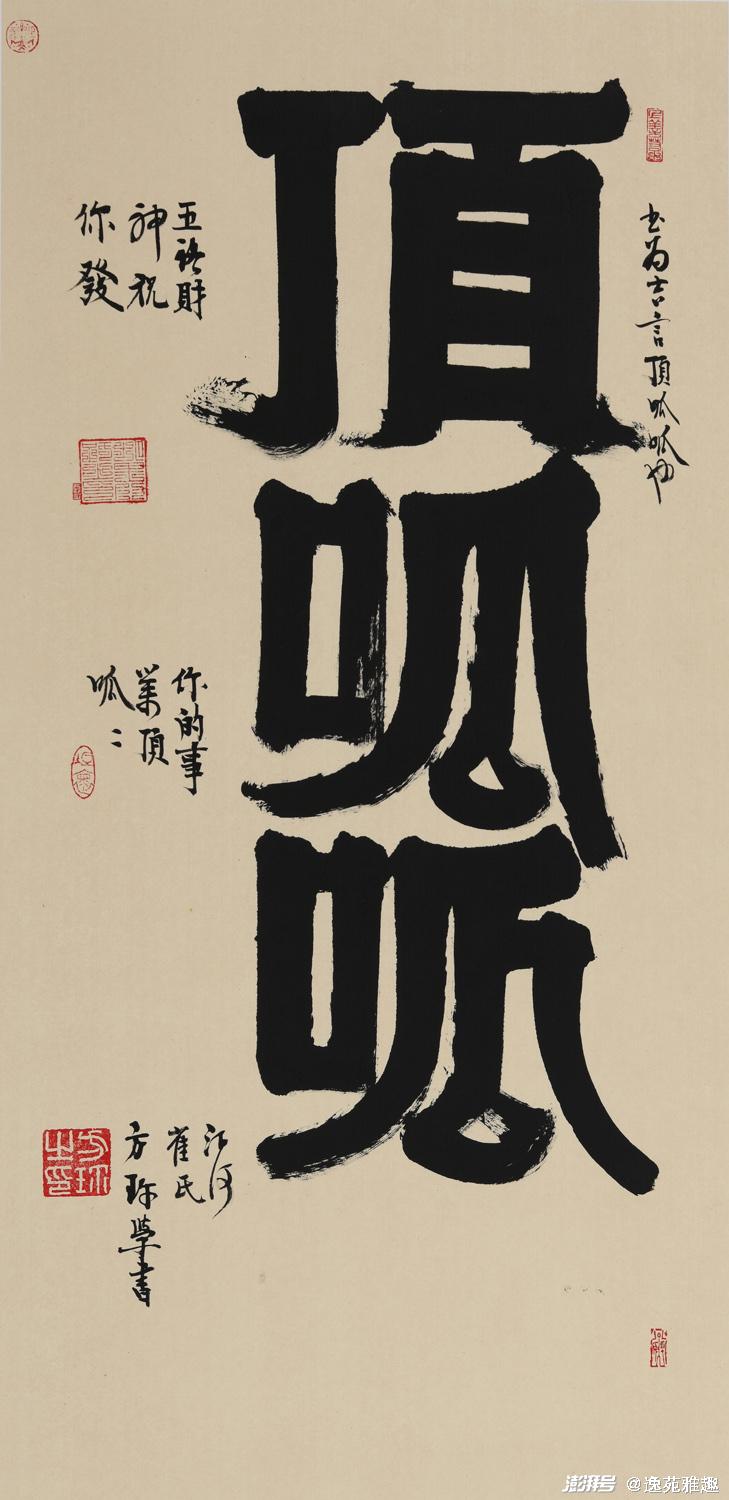 书为吉言頂呱呱也
頂呱呱
五路財
神祝
你發
你的事
業頂
呱::
江河
民
方珎學書
澎湃号 @逸苑雅趣